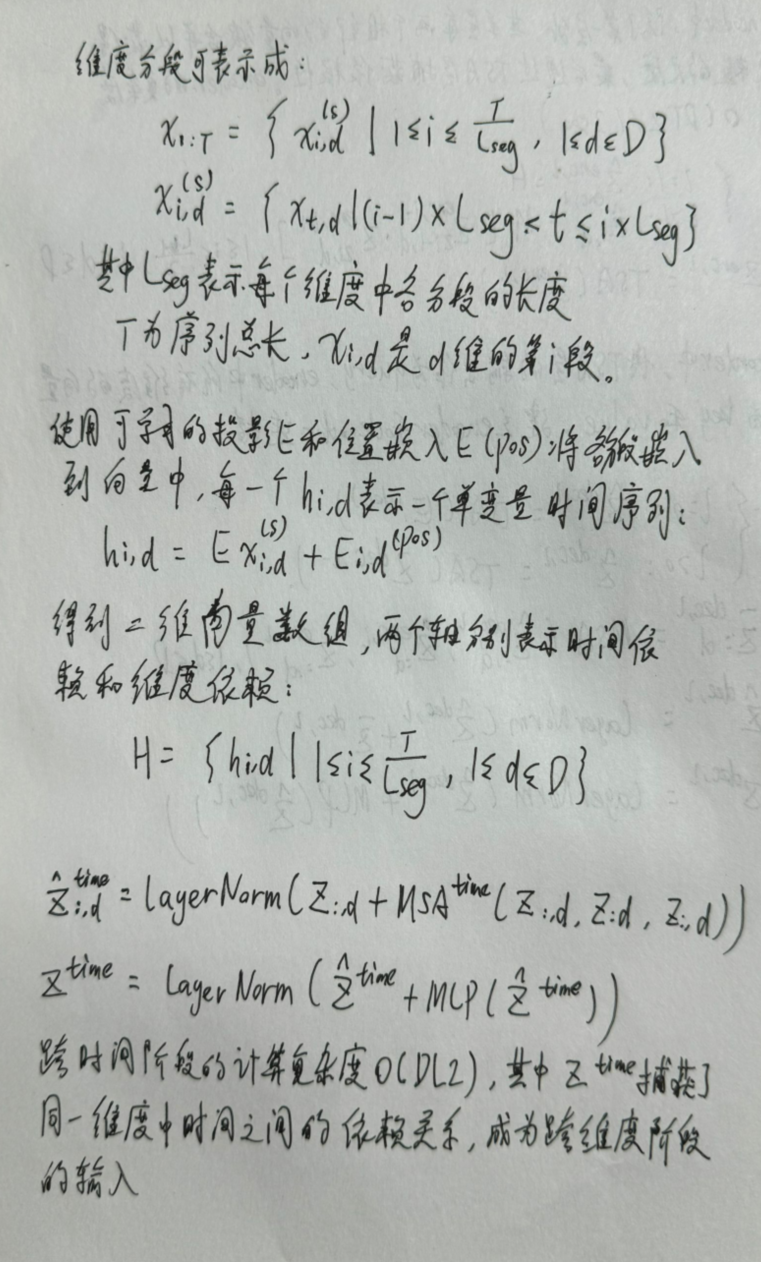 维度分段可表示成:
x₁:T = { x_{i,d}^{(s)} | 1≤i≤ T/Lseg , 1≤d≤D }
x_{i,d}^{(s)} = { x_{t,d} | (i-1)×Lseg < t ≤ i×Lseg }
其中Lseg表示每个维度中各分段的长度
T为序列总长, x_{i,d}是d维的第i段。
使用可学习的投影E和位置嵌入E(pos)将各段嵌入
到向量中, 每一个hi,d表示一个单变量时间序列:
hi,d = E x_{i,d}^{(s)} + E_{i,d}^{(pos)}
得到二维向量数组, 两个轴分别表示时间依
赖和维度依赖:
H = { hi,d | 1≤i≤ T/Lseg , 1≤d≤D }
Ẑ_{:,d}^{time} = LayerNorm(Z:,d + MSA^{time}(Z:,d, Z:,d, Z:,d))
Z^{time} = LayerNorm(Ẑ^{time} + MLP(Ẑ^{time}))
跨时间阶段的计算复杂度O(DL2), 其中Z^{time}捕获了
同一维度中时间之间的依赖关系, 成为跨维度阶段
的输入